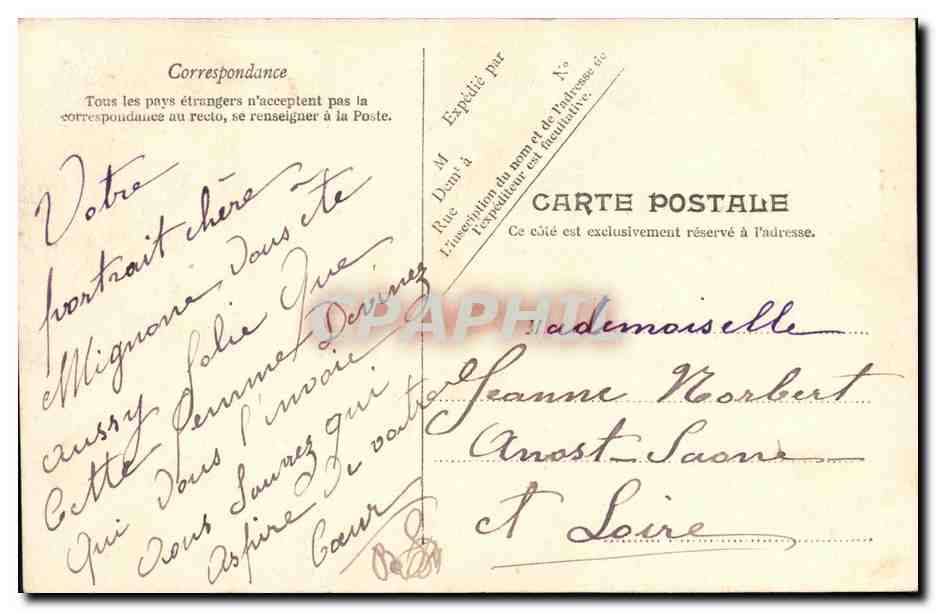 Correspondance
Tous les pays étrangers n'acceptent pas la
correspondance au recto, se renseigner à la Poste.
Votre
portrait chère
Mignone vous ete
aussy Jolie Que
Cette femme Devinez
qui vous l'envoie
vous Saurez qui
Aspire De votre
Cœur
Expédié par
M
Demt à
Rue
N°
L'inscription du nom et de l'adresse de
l'expéditeur est facultative.
CARTE POSTALE
Ce côté est exclusivement réservé à l'adresse.
Mademoiselle
Jeanne Norbert
Anost Saone
et Loire
CPAPHIL